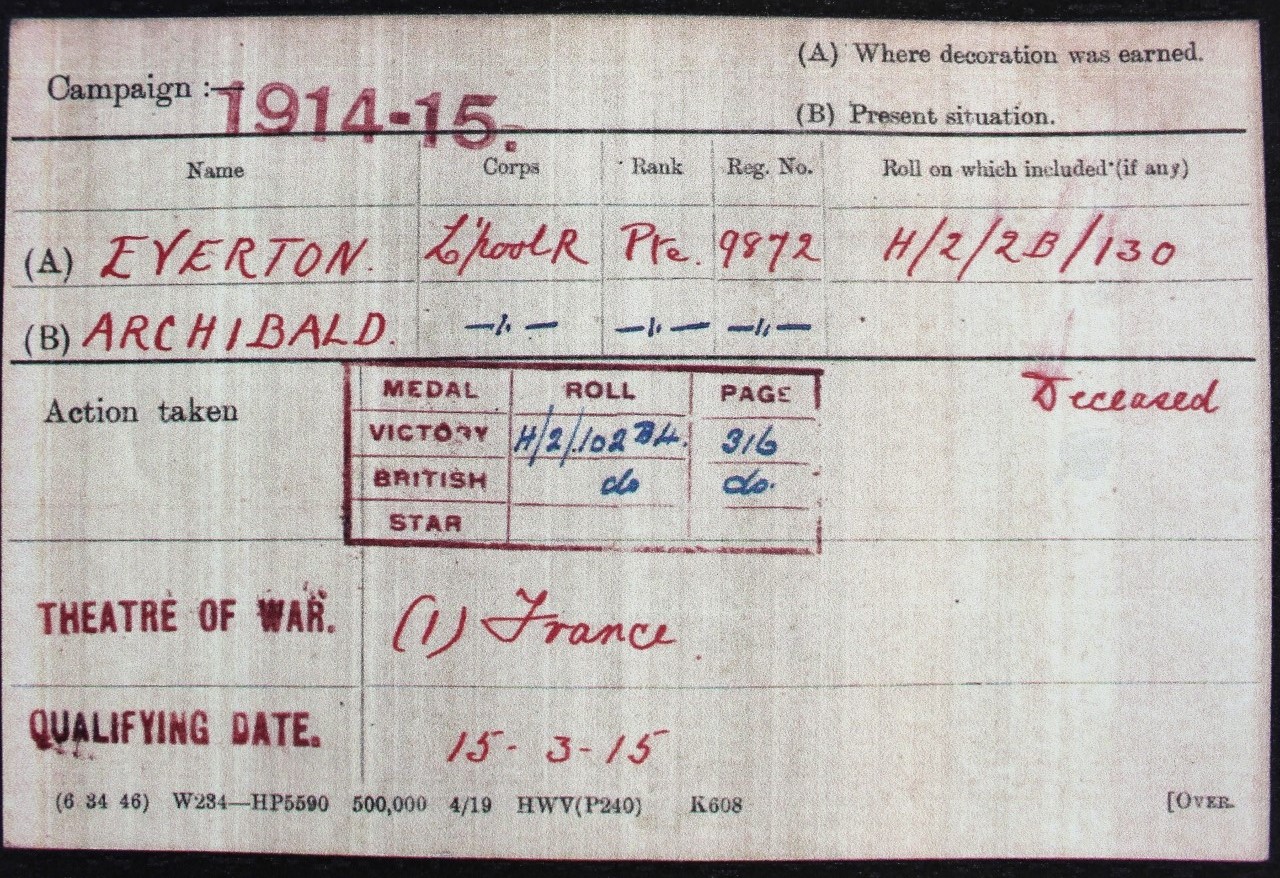 (A) Where decoration was earned.
Campaign :— 1914-15.
(B) Present situation.
Name Corps Rank Reg. No. Roll on which included (if any)
(A) EVERTON. L'pool R Pte. 9872 H/2/2B/130
(B) ARCHIBALD. —"— —"— —"—
Action taken
MEDAL ROLL PAGE
VICTORY H/2/102B4. 316
BRITISH do do.
STAR
Deceased
THEATRE OF WAR. (1) France
QUALIFYING DATE. 15-3-15
(6 34 46) W234—HP5590 500,000 4/19 HWV(P240) K608 [OVER.